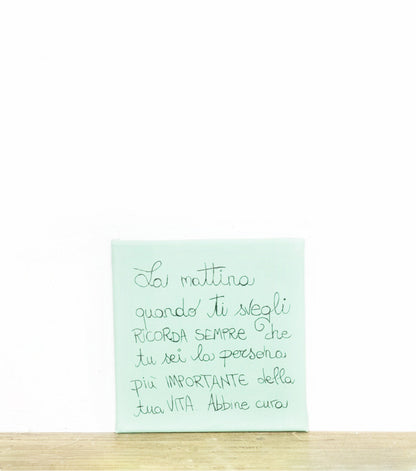 La mattina
quando ti svegli
RICORDA SEMPRE che
tu sei la persona
più IMPORTANTE della
tua VITA. Abbine cura